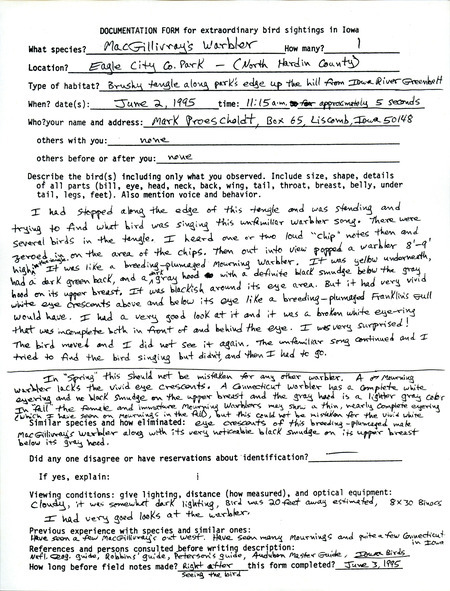 DOCUMENTATION FORM for extraordinary bird sightings in Iowa
What species? MacGillivray's Warbler How many? 1
Location? Eagle City Co. Park - (North Hardin County)
Type of habitat? Brushy tangle along park's edge up the hill from Iowa River Greenbelt
When? date(s): June 2, 1995 time: 11:15 a.m. for approximately 5 seconds
Who?your name and address: Mark Proescholdt, Box 65, Liscomb, Iowa 50148
others with you: none
others before or after you: none
Describe the bird(s) including only what you observed. Include size, shape, details
of all parts (bill, eye, head, neck, back, wing, tail, throat, breast, belly, under
tail, legs, feet). Also mention voice and behavior.
I had stopped along the edge of this tangle and was standing and
trying to find what bird was singing this unfamiliar warbler song. There were
several birds in the tangle. I heard one or two loud "chip" notes then and
zeroed in on the area of the chips. Then out into view popped a warbler 8'-9'
high. It was like a breeding-plumaged Mourning Warbler. It was yellow underneath,
had a dark green back, and a gray hood with a definite black smudge below the gray
hood on its upper breast. It was blackish around its eye area. But it had very vivid
white eye crescents above and below its eye like a breeding-plumaged Franklin's Gull
would have. I had a very good look at it and it was a broken white eye-ring
that was incomplete both in front of and behind the eye. I was very surprised!
The bird moved and I did not see it again. The unfamiliar song continued and I
tried to find the bird singing but didn't, and then I had to go.
In "Spring" this should not be mistaken for any other warbler. A Mourning
Warbler lacks the vivid eye crescents. A Connecticut Warbler has a complete white
eyering and no black smudge on the upper breast and the gray hood is a lighter gray color
In fall the female and immature Mourning Warblers may show a thin, nearly complete eyering
(which I have seen on Mournings in the fall), but this could not be mistaken for the vivid white
Similar species and how eliminated: eye crescents of this breeding-plumaged male
MacGillivray's Warbler along with its very noticeable black smudge on its upper breast
below its gray hood.
Did any one disagree or have reservations about identification?
If yes, explain:
Viewing conditions: give lighting, distance (how measured), and optical equipment:
Cloudy, it was somewhat dark lighting, Bird was 20 feet away estimated, 8x30 Binocs
I had very good looks at the warbler.
Previous experience with species and similar ones:
Have seen a few MacGillivray's out west. Have seen many Mournings and quite a few Connecticut
in Iowa
References and persons consulted before writing description:
Natl. Geog. guide, Robbins' guide, Peterson's guide, Audubon Master Guide, Iowa Birds
How long before field notes made? Right after this form completed? June 3, 1995
seeing the bird